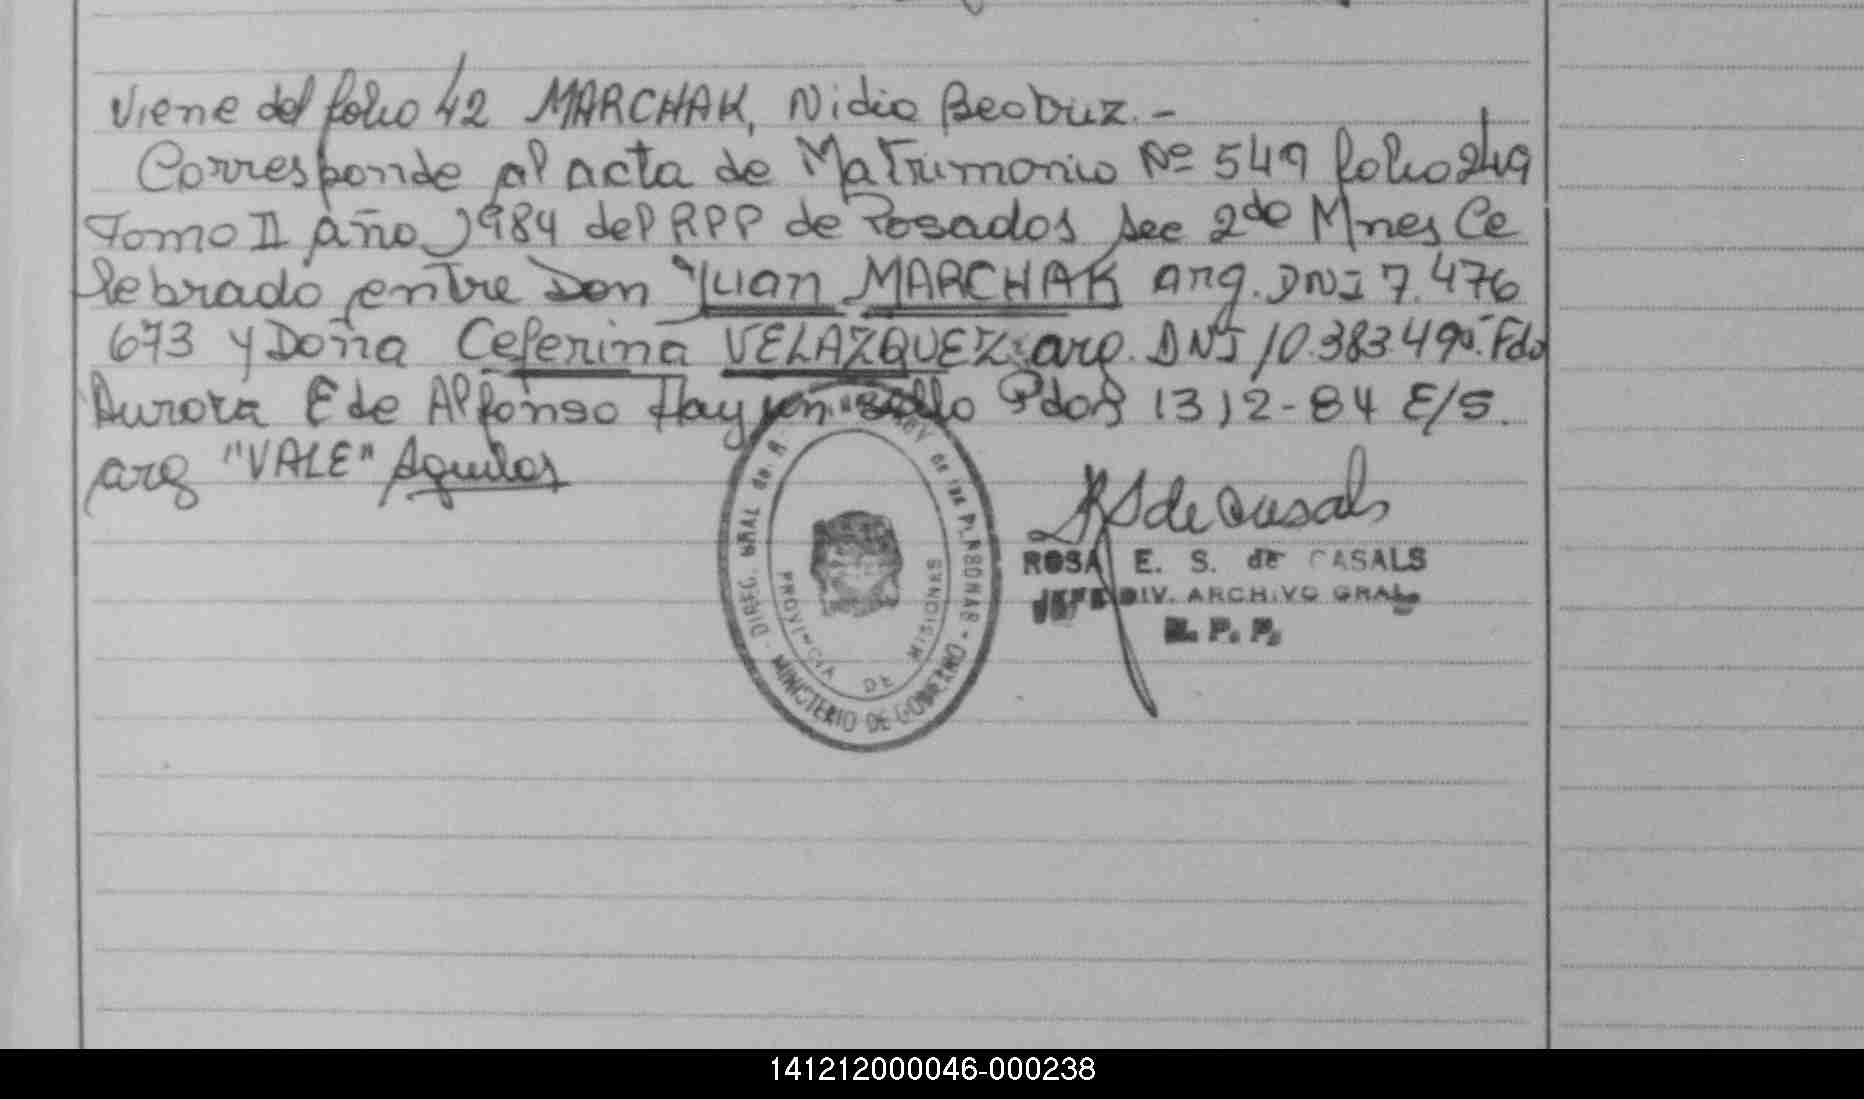 Viene del folio 42 MARCHAK, Nidia Beatriz.-
Corresponde al acta de Matrimonio Nº 549 folio 249
Tomo II año 1984 del RPP de Posadas sec 2do Mnes Ce
lebrado entre Don Juan MARCHAK arg. DNI 7.476
673 y Doña Ceferina VELAZQUEZ arg. DNI 10.383.490. Fdo
Aurora E de Alfonso Hay un sello Pdas 13 12-84 E/S.
arg "VALE" Aguilas
DIREC. GRAL de. R. PROV de las PERSONAS - MINISTERIO DE GOBIERNO
PROVINCIA DE MISIONES
RS de Casals
ROSA E. S. de CASALS
JEFE DIV. ARCHIVO GRAL.
R. P. P.
141212000046-000238